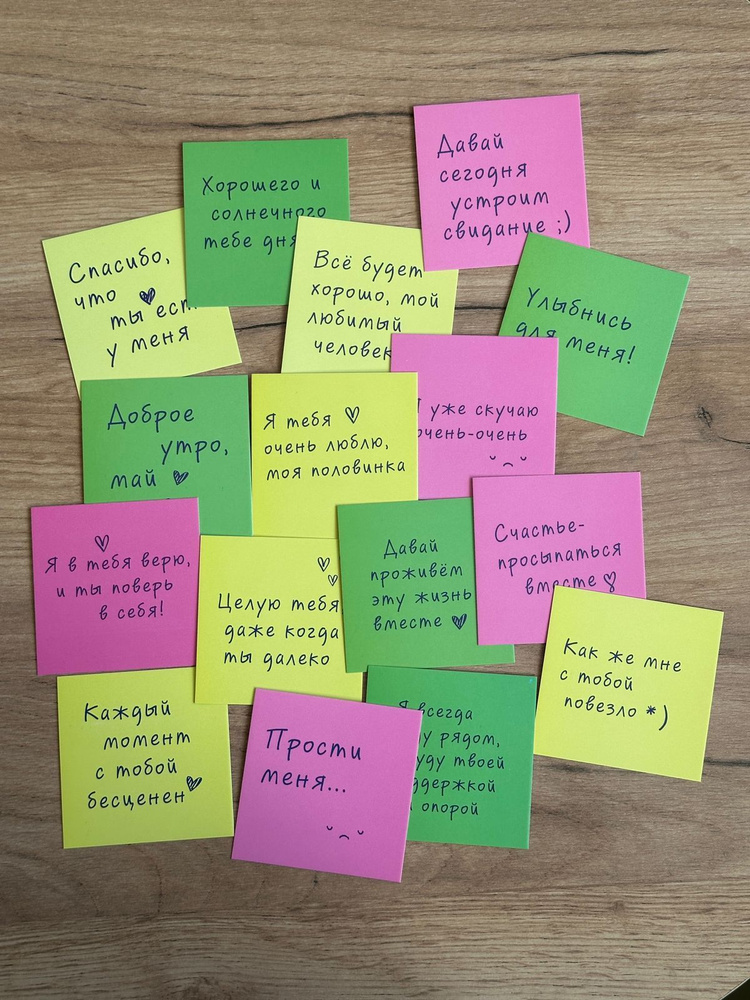 Давай
сегодня
устроим
свидание ;)
Хорошего и
солнечного
тебе дня
Спасибо,
что ♥
ты ест
у меня
Всё будет
хорошо, мой
любимый
человек
Улыбнись
для меня!
Доброе
утро,
май ♥
Я тебя ♡
очень люблю,
моя половинка
уже скучаю
очень-очень
Я в тебя верю,
и ты поверь
в себя!
Целую тебя
даже когда
ты далеко
Давай
проживём
эту жизнь
вместе ♥
Счастье-
просыпаться
вместе ♡
Как же мне
с тобой
повезло *)
Каждый
момент
с тобой
бесценен ♥
Прости
меня...
Я всегда
рядом,
твоей
опорой